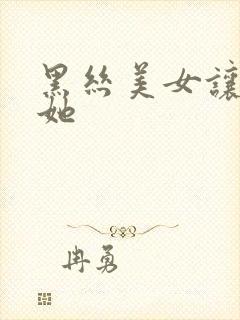 黑丝美女讓
她
冉勇